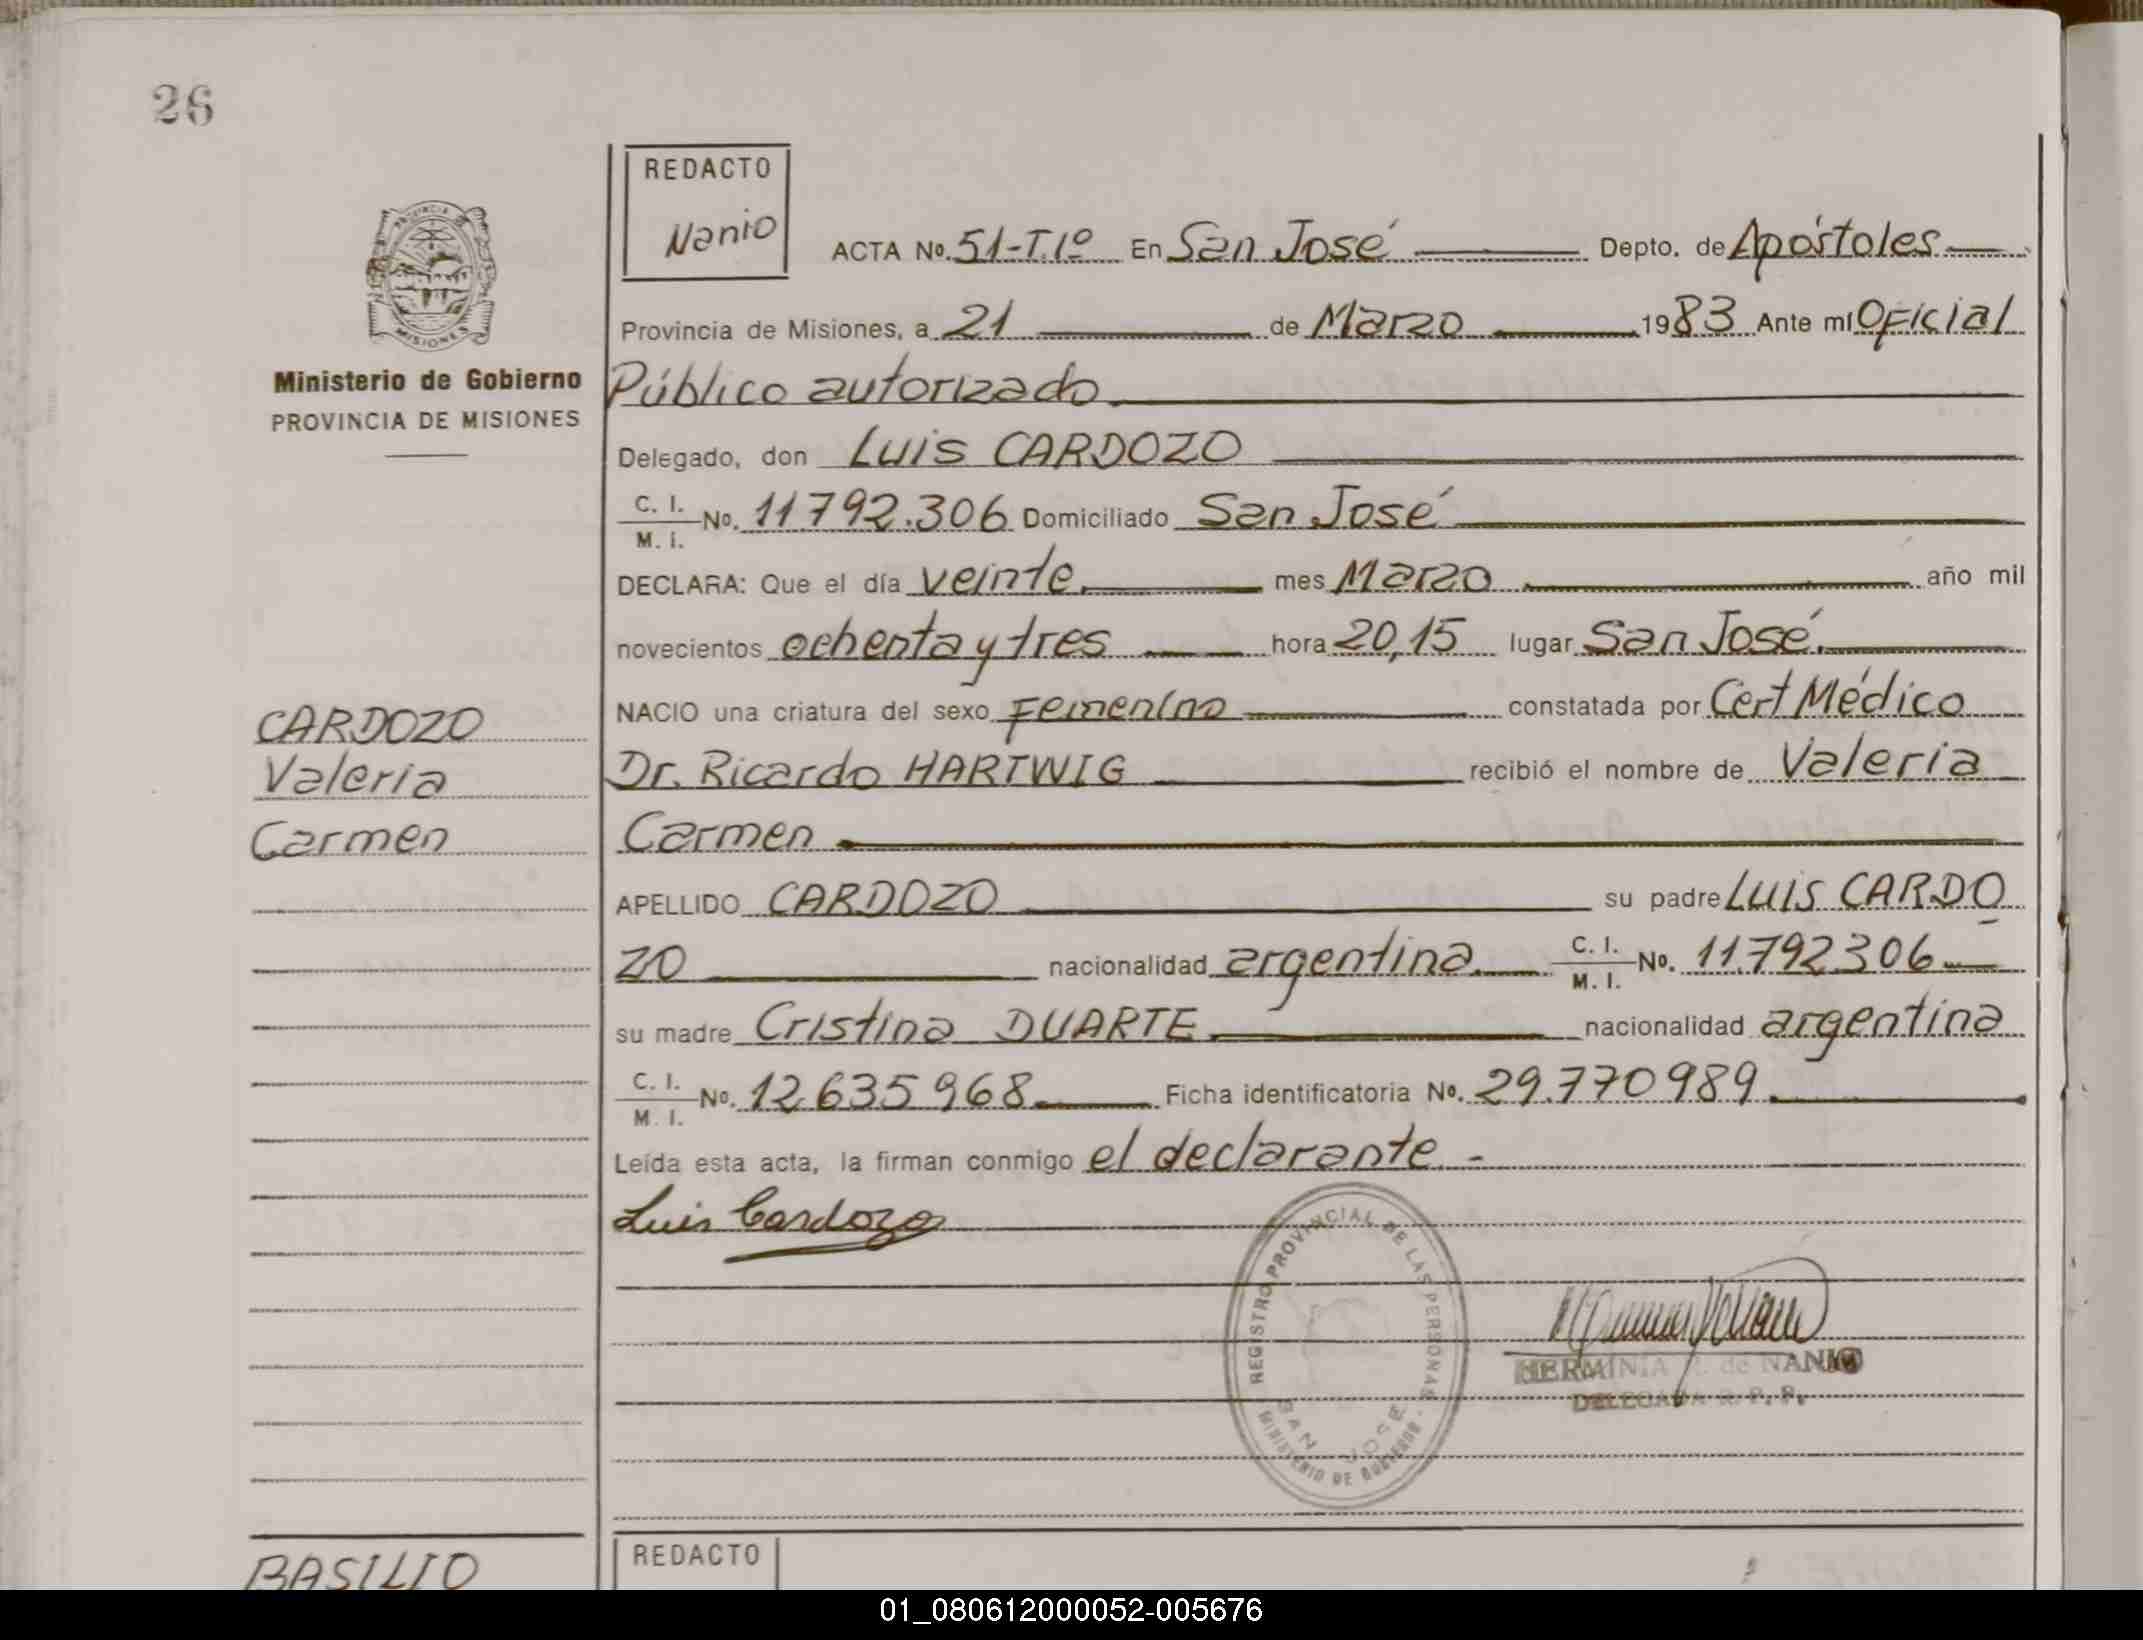 26
REDACTO
Nanio
PROVINCIA DE
MISIONES
Ministerio de Gobierno
PROVINCIA DE MISIONES
ACTA No. 51-T.Iº En San José Depto. de Apóstoles
Provincia de Misiones, a 21 de Marzo 1983 Ante mí Oficial
Público autorizado
Delegado, don Luis CARDOZO
C. I. / M. I. No. 11792.306 Domiciliado San José
DECLARA: Que el día veinte mes Marzo año mil
novecientos ochenta y tres hora 20,15 lugar San José.
NACIO una criatura del sexo Femenino constatada por Cert Médico
Dr. Ricardo HARTWIG recibió el nombre de Valeria
Carmen
CARDOZO
Valeria
Carmen
APELLIDO CARDOZO su padre Luis CARDO
ZO nacionalidad argentina C. I. / M. I. No. 11.792.306
su madre Cristina DUARTE nacionalidad argentina
C. I. / M. I. No. 12.635968 Ficha identificatoria No. 29.770989
Leída esta acta, la firman conmigo el declarante -
Luis Cardozo
REGISTRO PROVINCIAL DE LAS PERSONAS
SAN JOSE
MINISTERIO DE GOBIERNO
HERMINIA de NANIO
DELEGADA R. P. P.
BASILIO
REDACTO
01_080612000052-005676